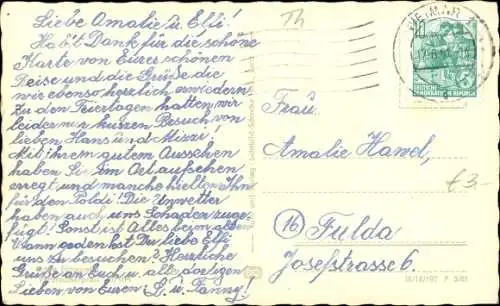 Liebe Amalie u. Elfi!
Hab't Dank für die schöne
Karte von Eurer schönen
Reise und die Grüße die
wir ebenso herzlich erwiedern
Zu den Feiertagen hatten wir
leider nur kurzen Besuch von
lieben Hans und Mizzi!
Mit ihrem gutem Aussehen
haben Sie im Ort aufsehen
erregt und manche hielten Ihn
für den Poldi! Die Unwetter
haben auch uns Schaden zuge-
fügt! Sonst ist Alles beim alten
Wann gedenkst Du liebe Elfi
uns zu besuchen? Herzliche
Grüße an Euch u. alle dortigen
Lieben von Euren L. u. Fanny!
Th
WEIMAR
DEUTSCHE
DEMOKRATISCHE REPUBLIK
5
Frau
Amalie Handel,
€3.-
16 Fulda
Josefstrasse 6.